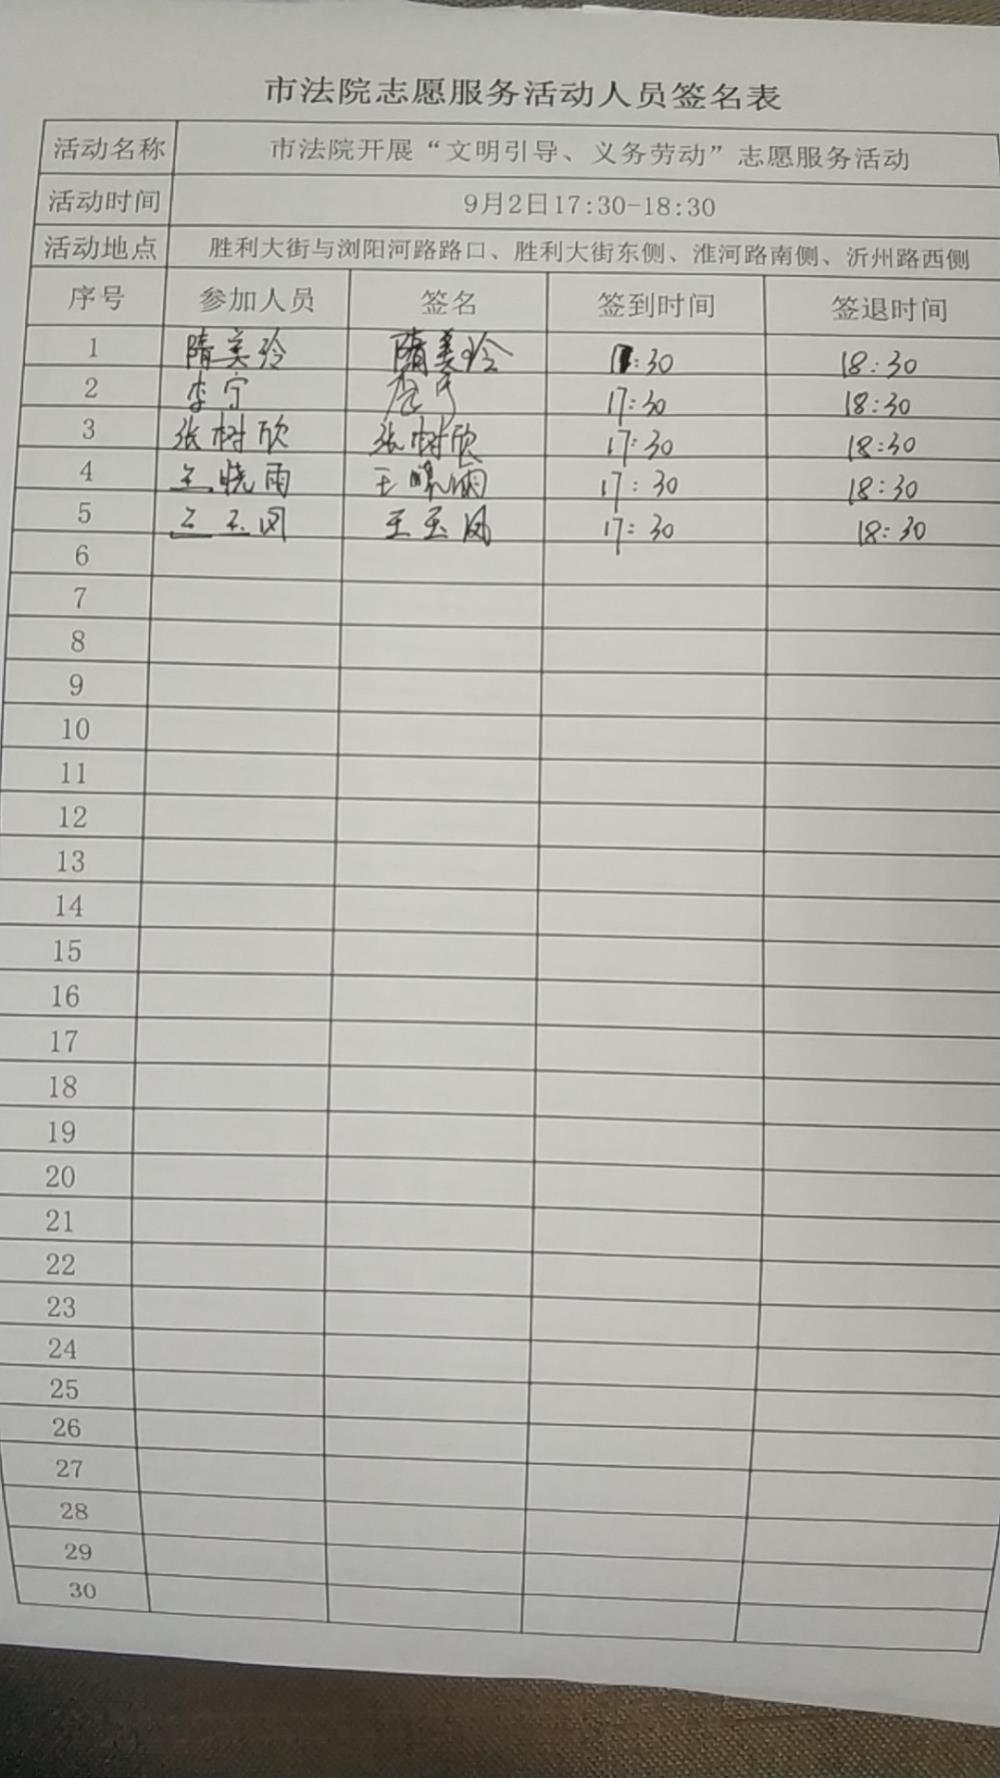 市法院志愿服务活动人员签名表
活动名称 市法院开展“文明引导、义务劳动”志愿服务活动
活动时间 9月2日17:30-18:30
活动地点 胜利大街与浏阳河路路口、胜利大街东侧、淮河路南侧、沂州路西侧
序号 参加人员 签名 签到时间 签退时间
1 隋美玲 隋美玲 17:30 18:30
2 李宁 李宁 17:30 18:30
3 张树欣 张树欣 17:30 18:30
4 王晓雨 王晓雨 17:30 18:30
5 王玉凤 王玉凤 17:30 18:30
6
7
8
9
10
11
12
13
14
15
16
17
18
19
20
21
22
23
24
25
26
27
28
29
30